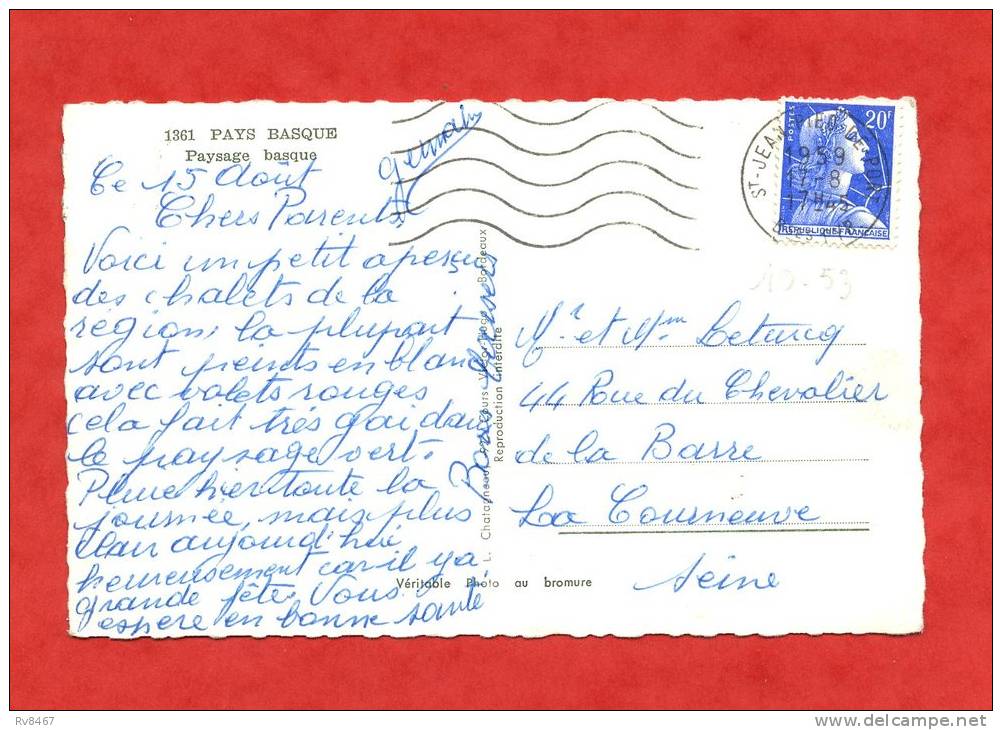 1361 PAYS BASQUE
Paysage basque
Ce 15 Août
Chers Parents
Voici un petit aperçu
des chalets de la
région, la plupart
sont peints en blanc
avec volets rouges
cela fait très gai dans
le paysage vert.
Pluie hier toute la
journée, mais plus
clair aujourd'hui
heureusement car il y a
grande fête. Vous
espère en bonne santé
Bons baisers
Germain
L. Chatagneau, Cours Victor-Hugo - Bordeaux
Reproduction interdite
Véritable Photo au bromure
ST-JEAN-PIED-DE-PORT
1959
17-8
17H45
POSTES
20F
REPUBLIQUE FRANCAISE
19.53
Mr et Mme Leturcq
44 Rue du Chevalier
de la Barre
La Courneuve
Seine
Rv8467
delcampe.net